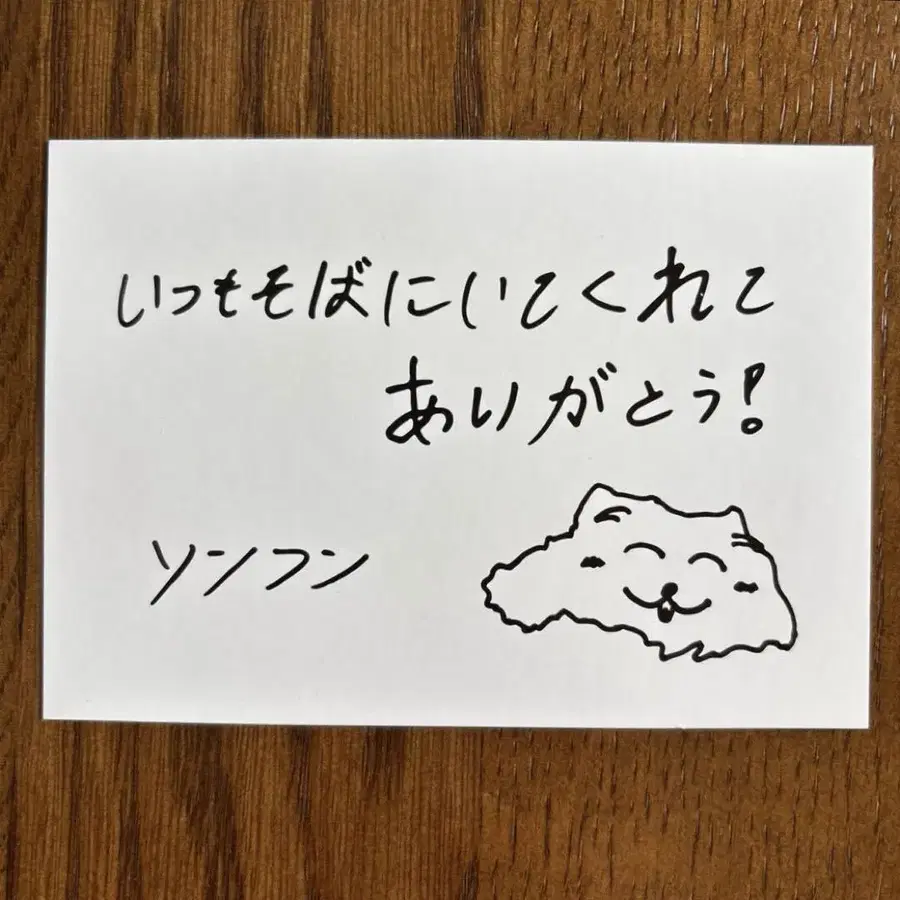 いつもそばにいてくれて
ありがとう!
ソンフン